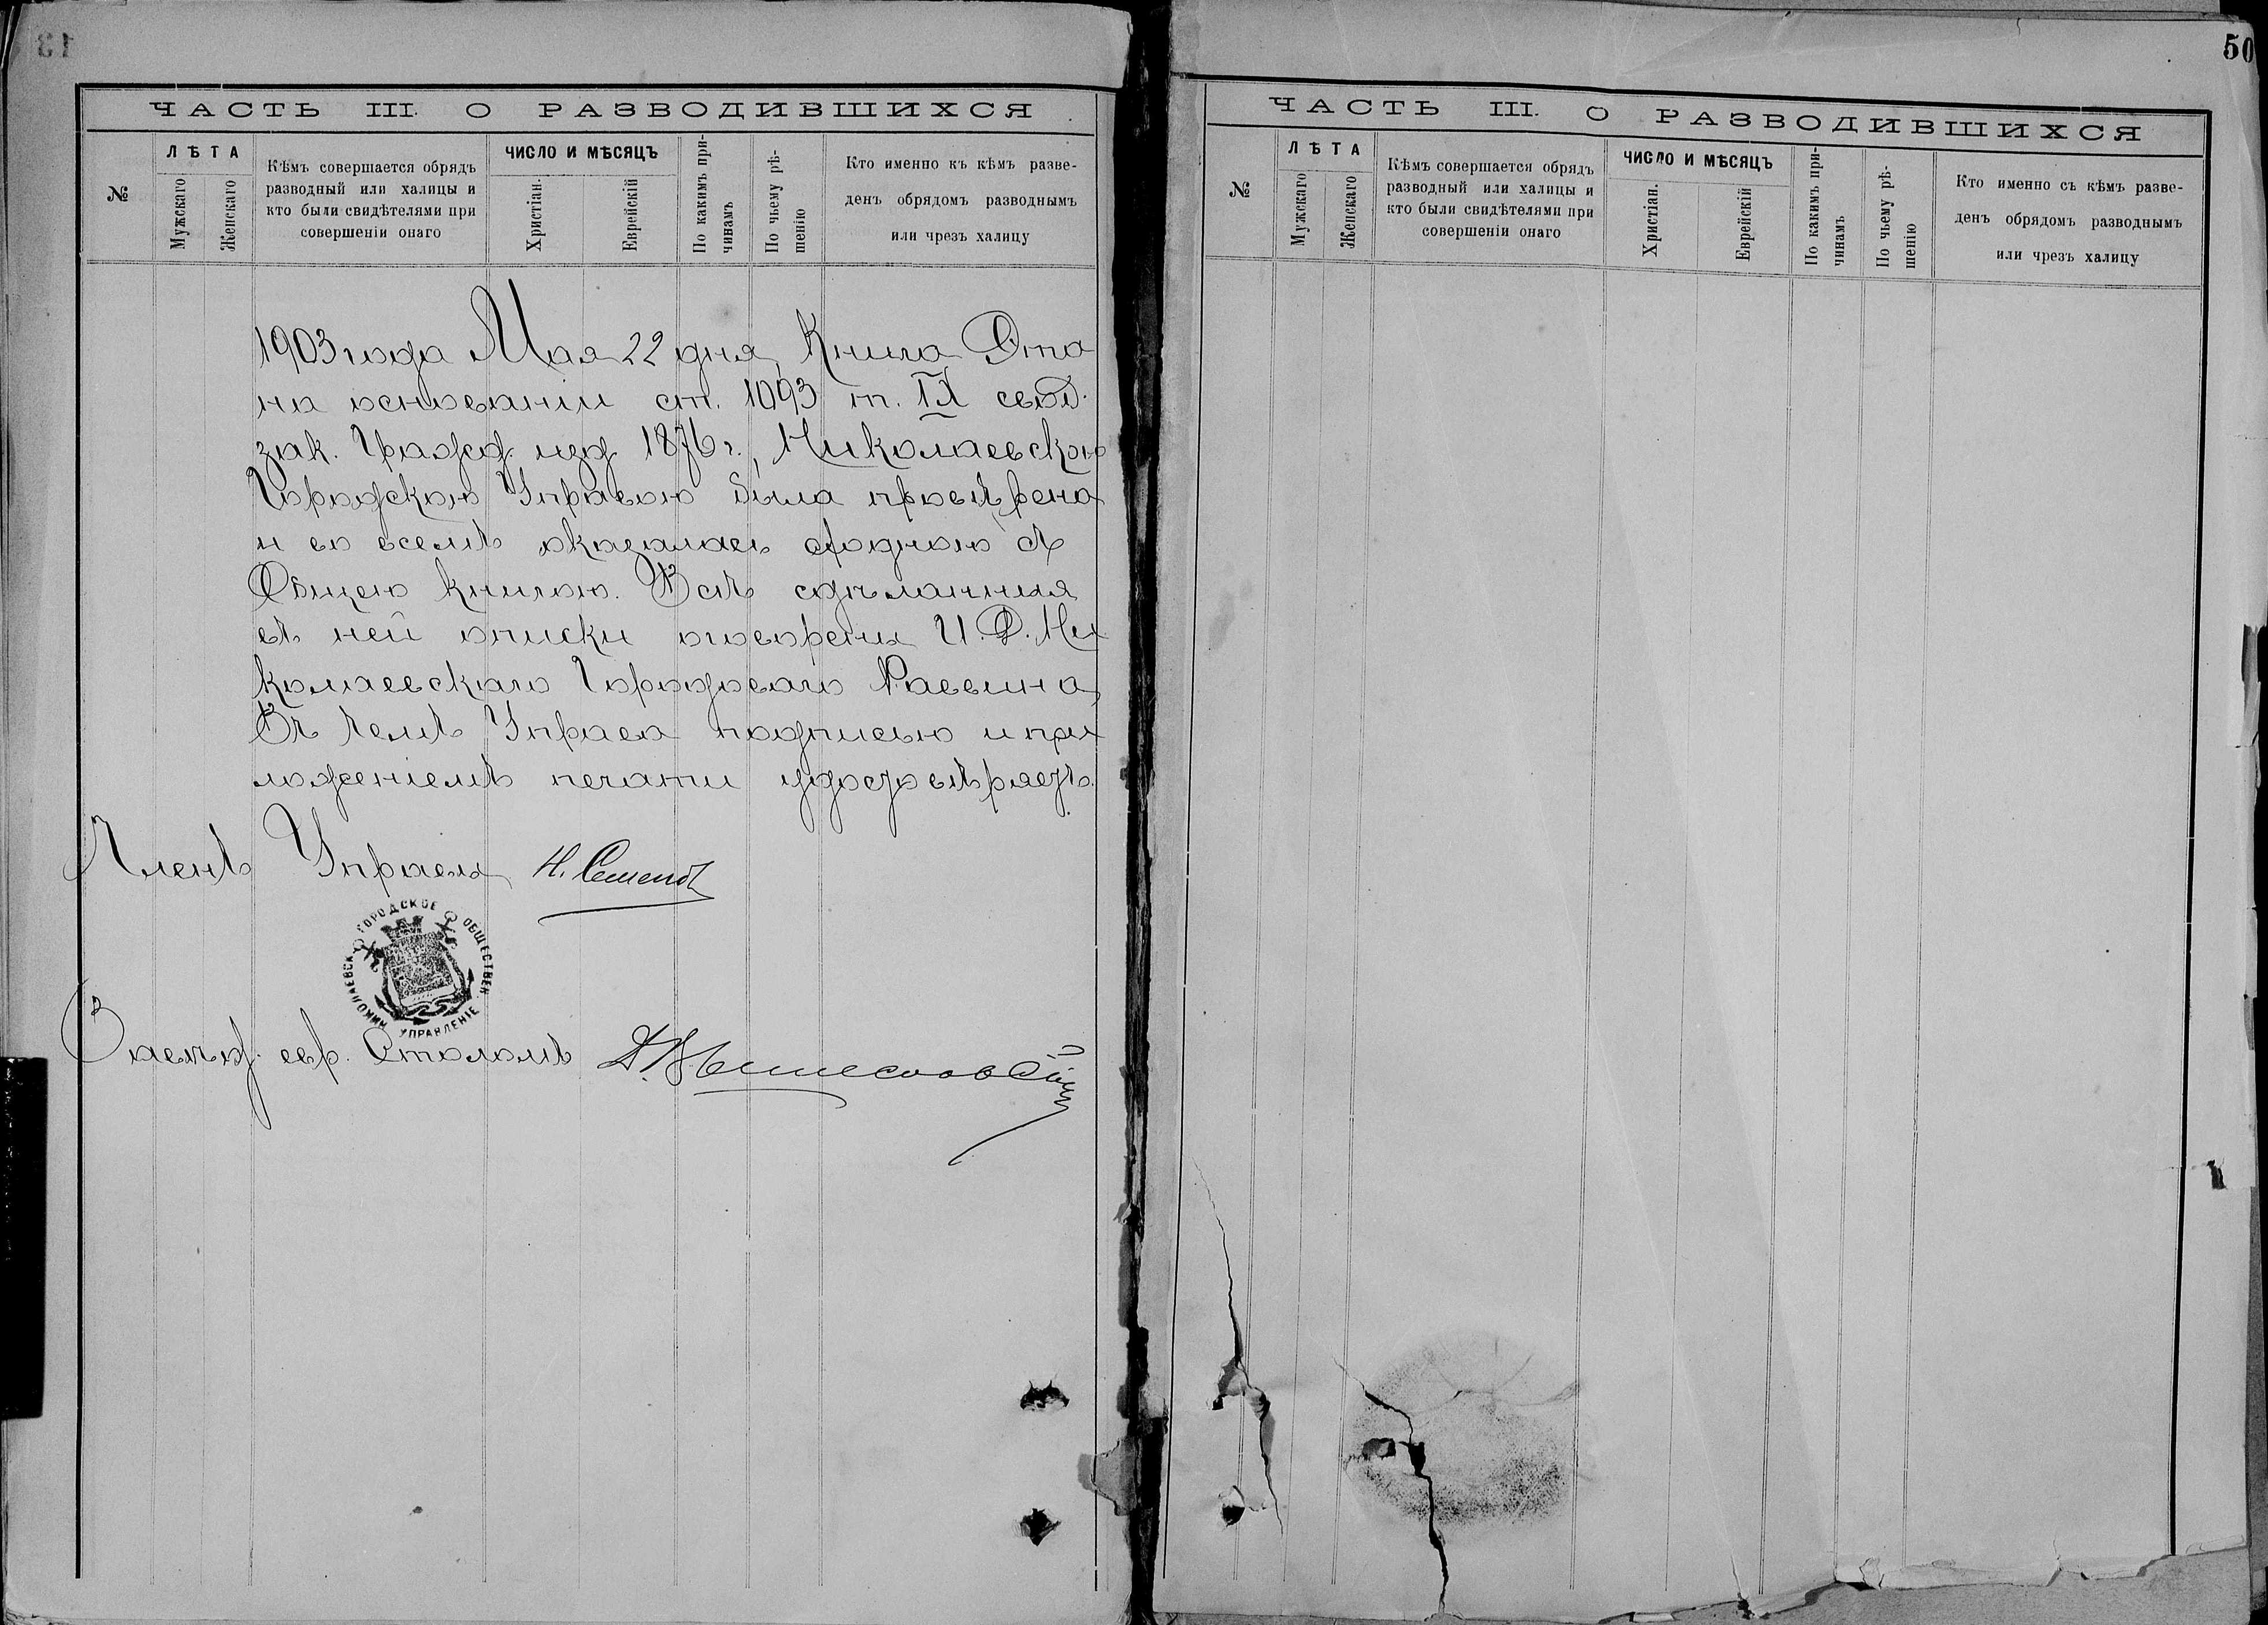 13
ЧАСТЬ III. О РАЗВОДИВШИХСЯ
№
ЛѢТА
Мужскаго
Женскаго
Кѣмъ совершается обрядъ
разводный или халицы и
кто были свидѣтелями при
совершеніи онаго
ЧИСЛО И МѢСЯЦЪ
Христіан.
Еврейскій
По какимъ при-
чинамъ
По чьему рѣ-
шенію
Кто именно къ кѣмъ разве-
денъ обрядомъ разводнымъ
или чрезъ халицу
1903 года Мая 22 дня, Книга Эта
на основаніи ст. 1093 т. IX свод.
зак. Гражд. изд 1876 г., Николаевскою
Городскою Управою была провѣрена
и во всемъ оказалась сходною съ
Общею книгою. Всѣ сдѣланныя
въ ней описки оговорены И. Д. Ни
колаевскаго Городоваго Раввина,
Въ чемъ Управа подписью и при
ложеніемъ печати удостовѣряетъ.
Членъ Управы Н. Семенов
НИКОЛАЕВСК. ГОРОДСКОЕ ОБЩЕСТВЕН. УПРАВЛЕНІЕ
Завѣд. евр. Столомъ
50
ЧАСТЬ III. О РАЗВОДИВШИХСЯ
№
ЛѢТА
Мужскаго
Женскаго
Кѣмъ совершается обрядъ
разводный или халицы и
кто были свидѣтелями при
совершеніи онаго
ЧИСЛО И МѢСЯЦЪ
Христіан.
Еврейскій
По какимъ при-
чинамъ
По чьему рѣ-
шенію
Кто именно съ кѣмъ разве-
денъ обрядомъ разводнымъ
или чрезъ халицу